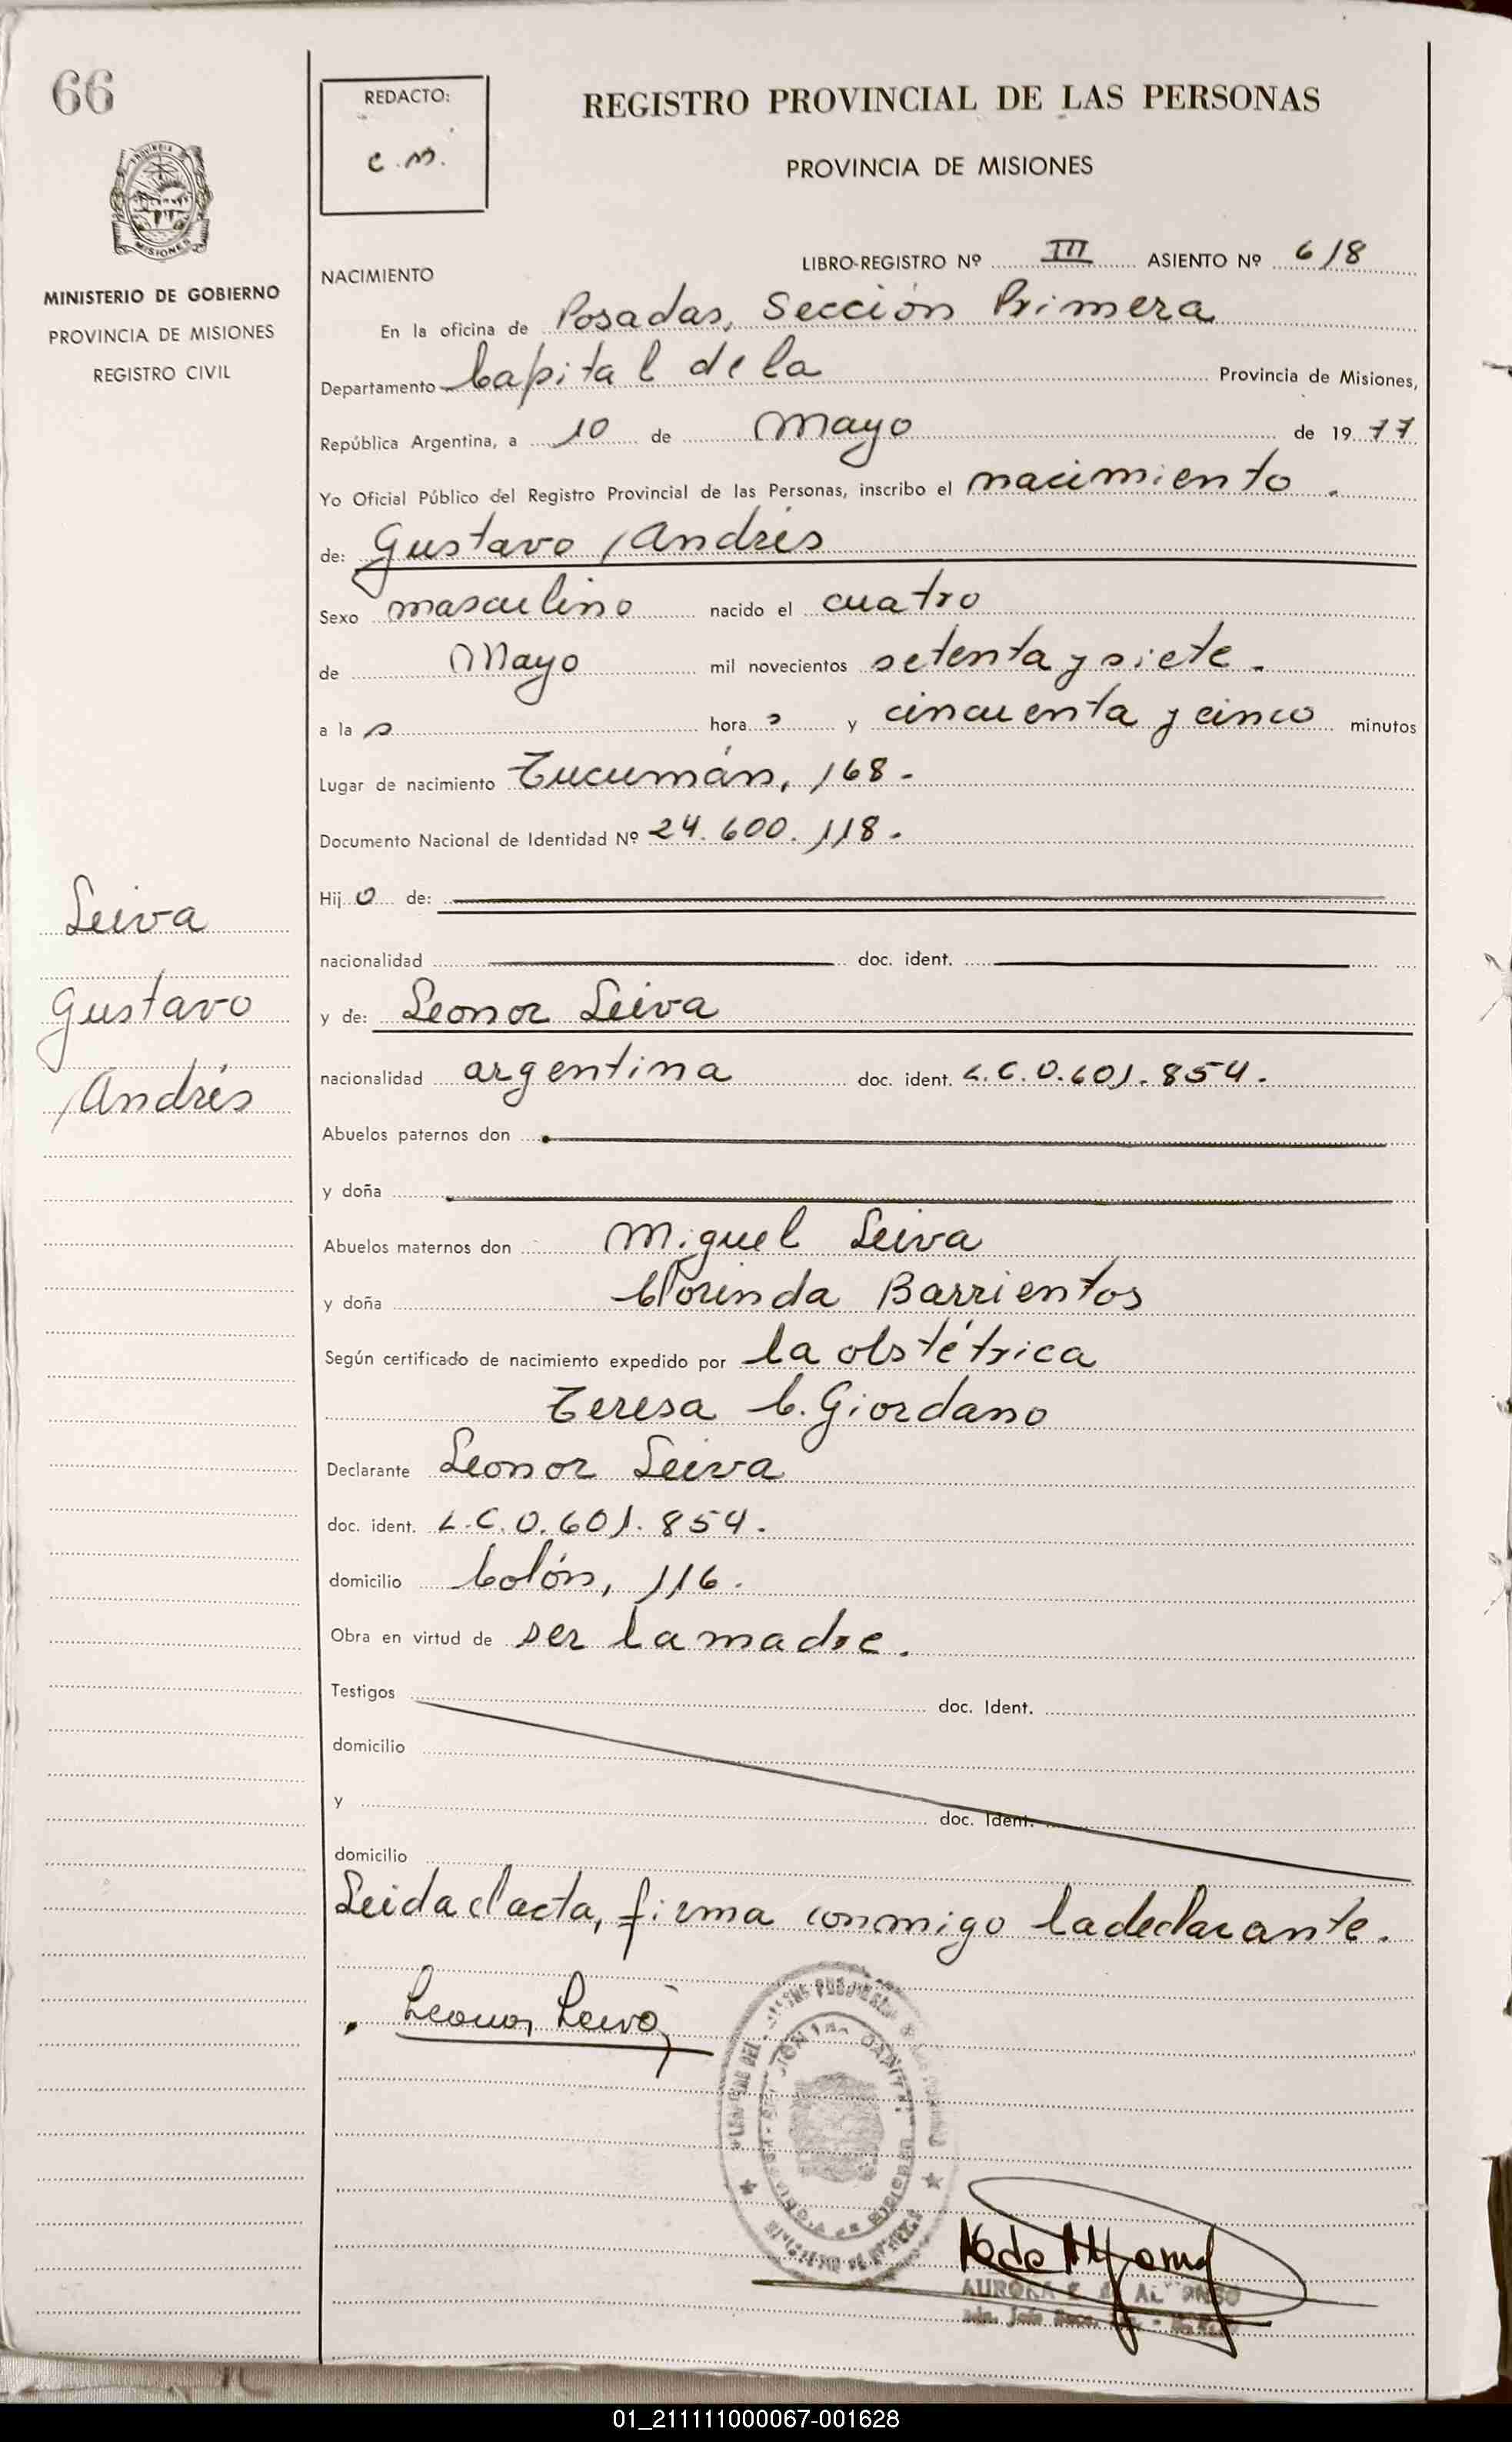 66
REDACTO:
c.m.
REGISTRO PROVINCIAL DE LAS PERSONAS
PROVINCIA DE MISIONES
MISIONES
MINISTERIO DE GOBIERNO
PROVINCIA DE MISIONES
REGISTRO CIVIL
LIBRO-REGISTRO Nº III ASIENTO Nº 618
NACIMIENTO
En la oficina de Posadas, Sección Primera
Departamento Capital de la Provincia de Misiones,
República Argentina, a 10 de Mayo de 1977
Yo Oficial Público del Registro Provincial de las Personas, inscribo el nacimiento.
de: Gustavo Andrés
Sexo masculino nacido el cuatro
de Mayo mil novecientos setenta y siete.
a la s hora s y cincuenta y cinco minutos
Lugar de nacimiento Tucumán, 168.
Documento Nacional de Identidad Nº 24.600.118.
Hijo de:
nacionalidad doc. ident.
y de: Leonor Leiva
nacionalidad argentina doc. ident. L.C. 0.601.854.
Abuelos paternos don
y doña
Abuelos maternos don Miguel Leiva
y doña Clorinda Barrientos
Según certificado de nacimiento expedido por la obstétrica
Teresa C. Giordano
Declarante Leonor Leiva
doc. ident. L.C. 0.601.854.
domicilio Colón, 116.
Obra en virtud de ser la madre.
Testigos doc. Ident.
domicilio
y doc. Ident.
domicilio
Leida el acta, firma conmigo la declarante.
Leonor Leiva
Leiva
Gustavo
Andrés
AURORA
01_211111000067-001628